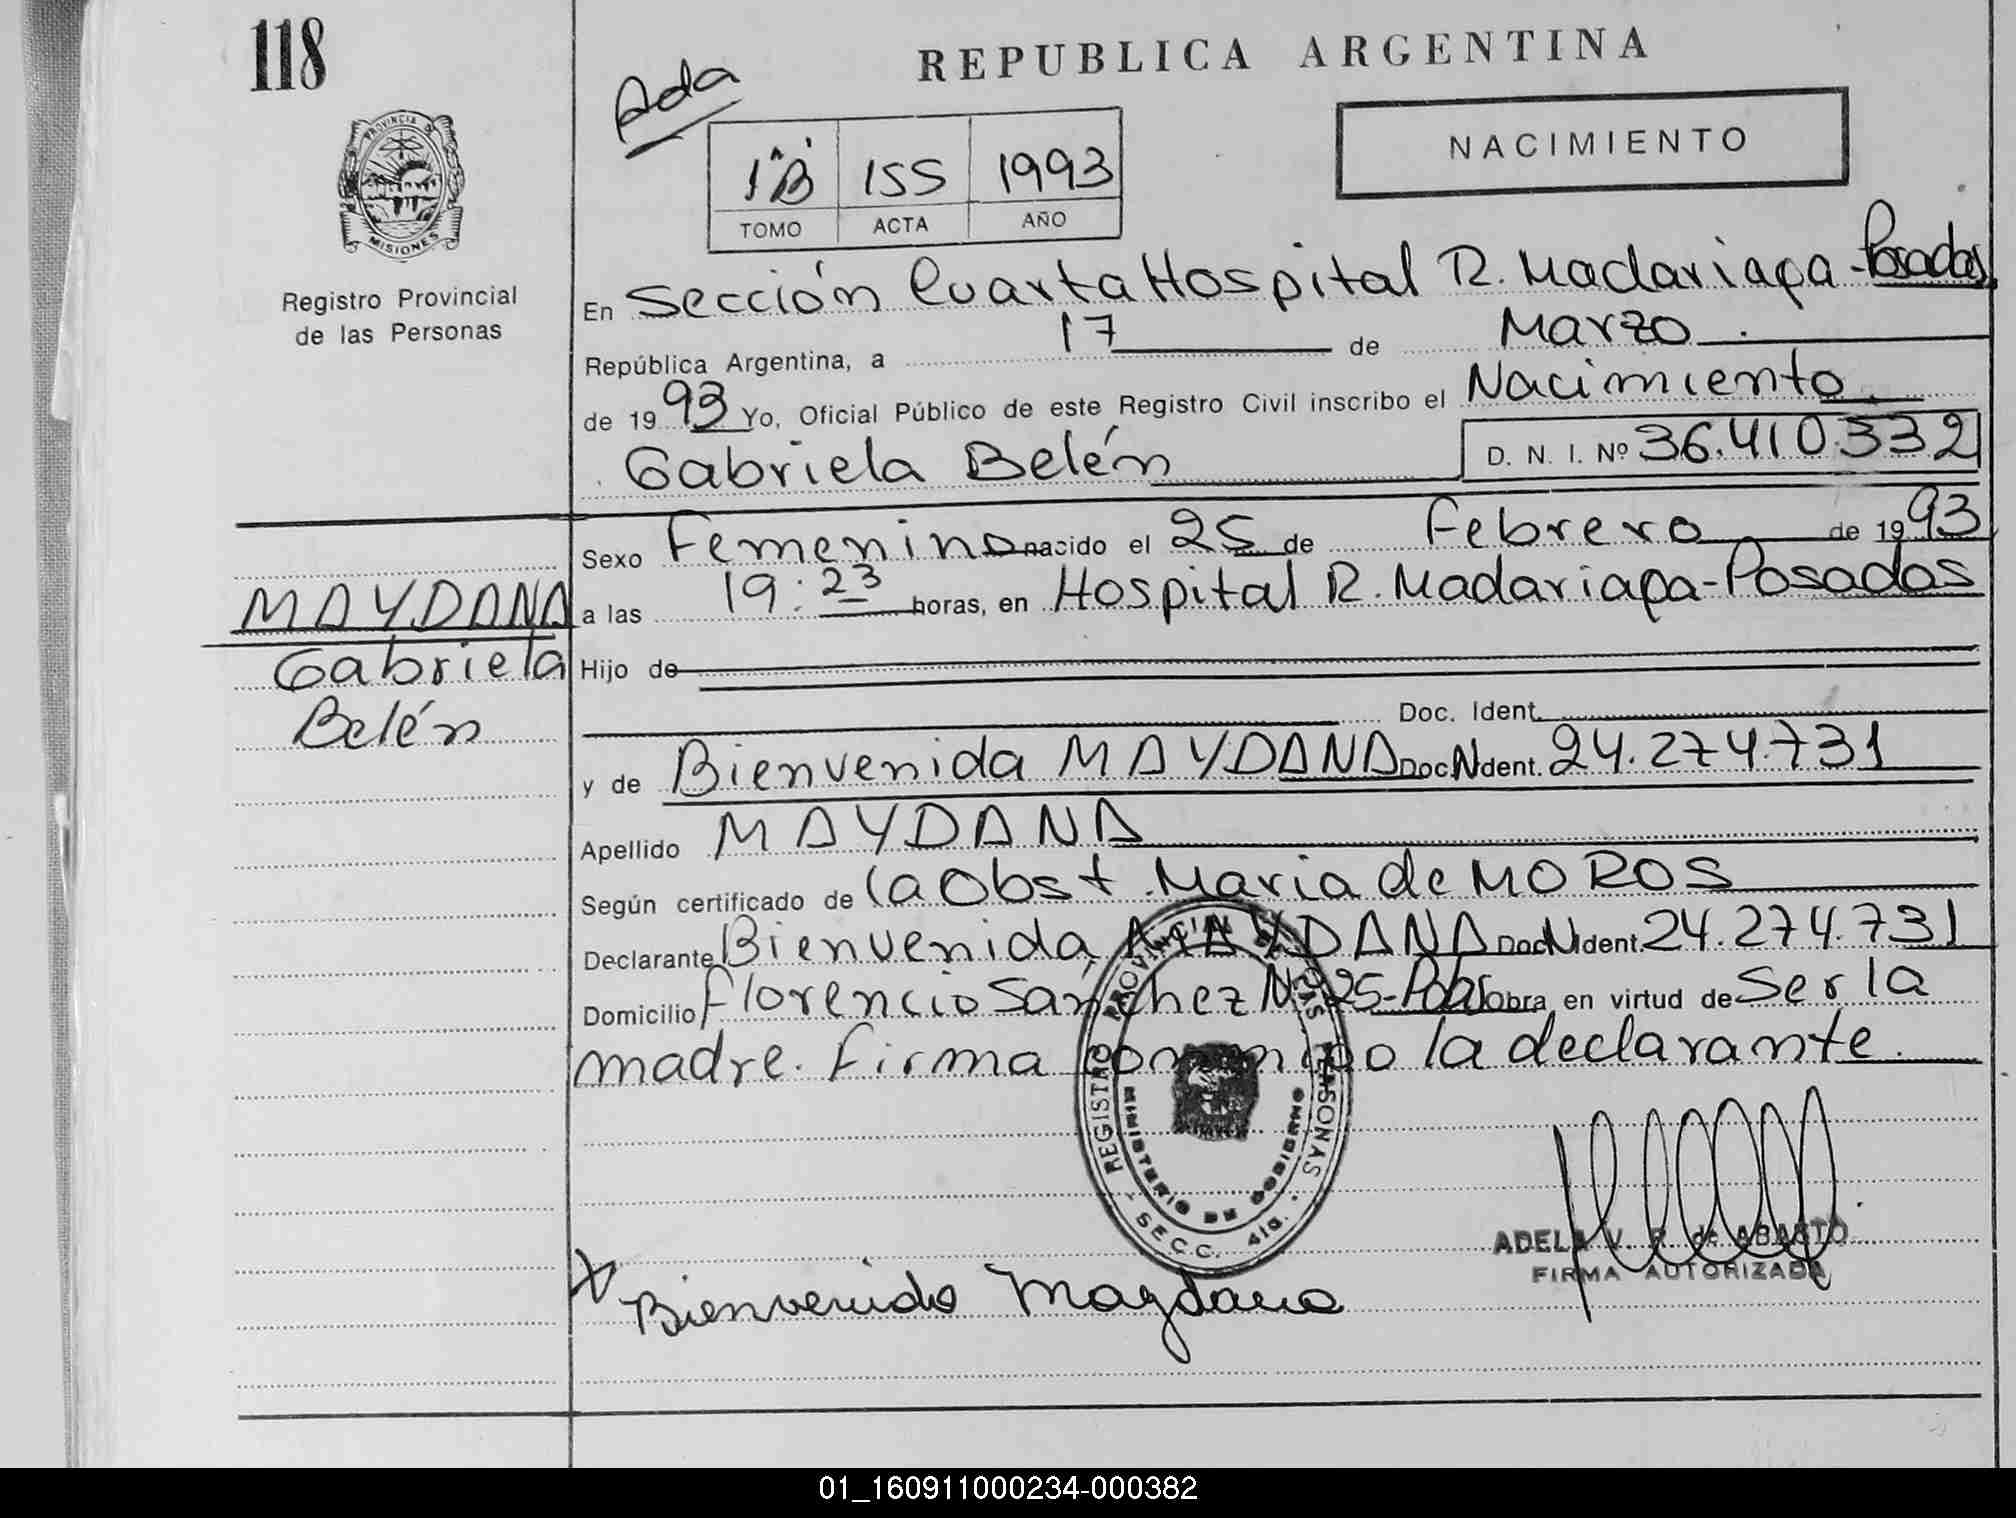 118
REPUBLICA ARGENTINA
Ada
NACIMIENTO
1"B" 155 1993
TOMO ACTA AÑO
PROVINCIA DE
MISIONES
Registro Provincial
de las Personas
En Sección Cuarta Hospital R. Madariaga - Posadas
República Argentina, a 17 de Marzo
de 1993 Yo, Oficial Público de este Registro Civil inscribo el Nacimiento
Gabriela Belén D. N. I. Nº 36.410.332
Sexo Femenino nacido el 25 de Febrero de 1993
MAYDANA
a las 19:23 horas, en Hospital R. Madariaga - Posadas
Gabriela
Hijo de
Belén
Doc. Ident.
y de Bienvenida MAYDANA Doc. N Ident. 24.274.731
Apellido MAYDANA
Según certificado de la Obst. Maria de MOROS
Declarante Bienvenida MAYDANA Doc. N Ident. 24.274.731
Domicilio Florencio Sánchez Nº 25 - Pdas obra en virtud de Ser la
madre. Firma conmigo la declarante.
REGISTRO PROVINCIAL DE LAS PERSONAS
MINISTERIO DE GOBIERNO
- SECC. 4ta. -
ADELA V. R. de ABASTO
FIRMA AUTORIZADA
X Bienvenida Maydana
01_160911000234-000382